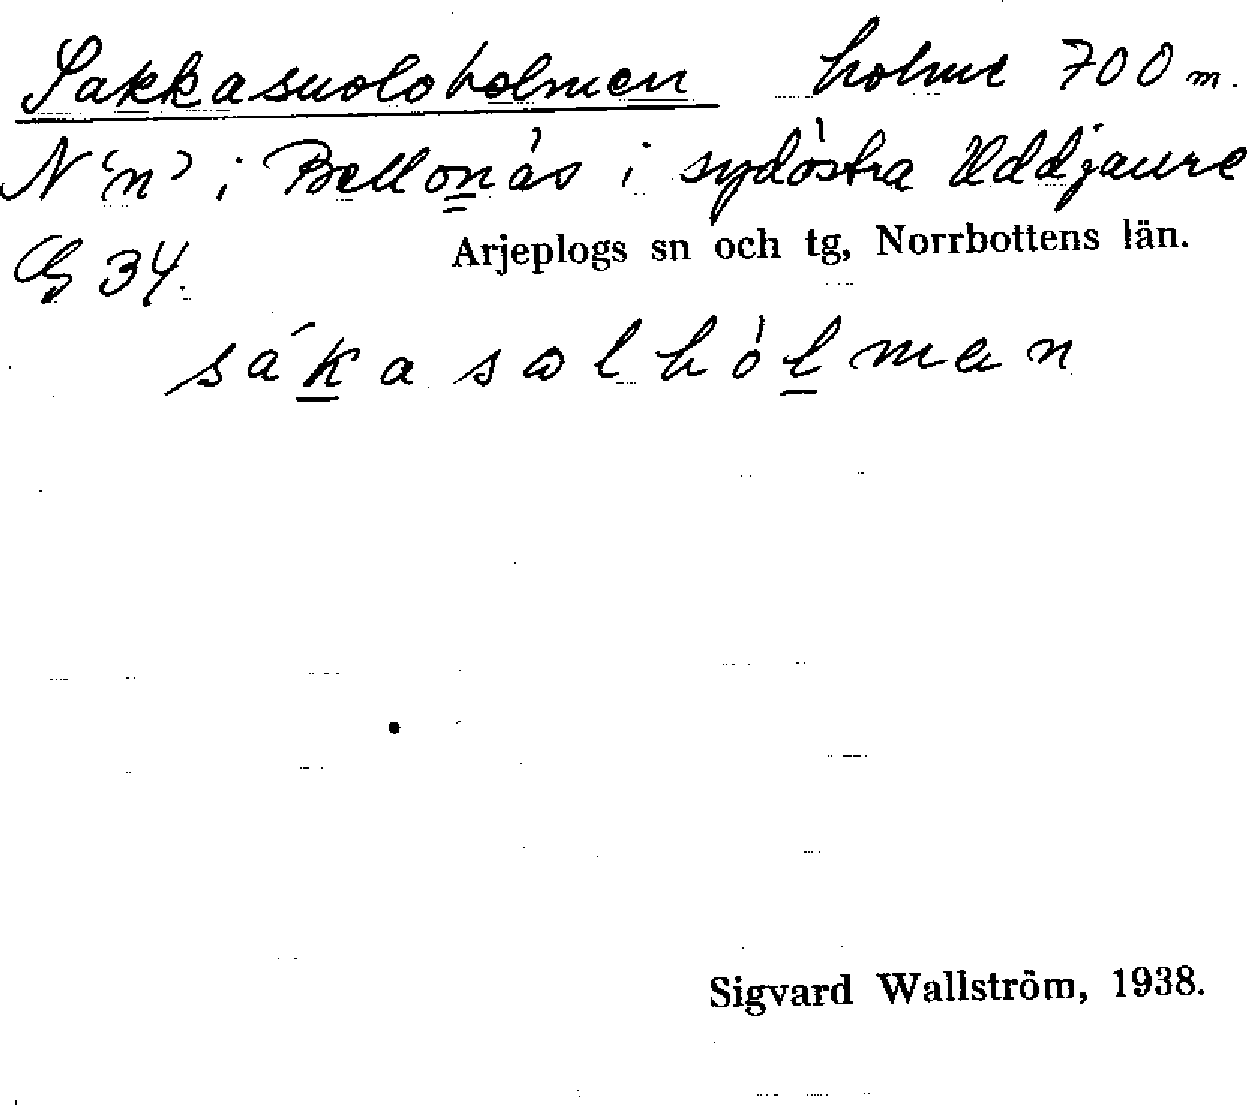 Sakkasuoloholmen holme 700 m.
N 'n' i Bellonäs i sydöstra Uddjaure
G 34.
Arjeplogs sn och tg, Norrbottens län.
sákasωlhólmεn
Sigvard Wallström, 1938.